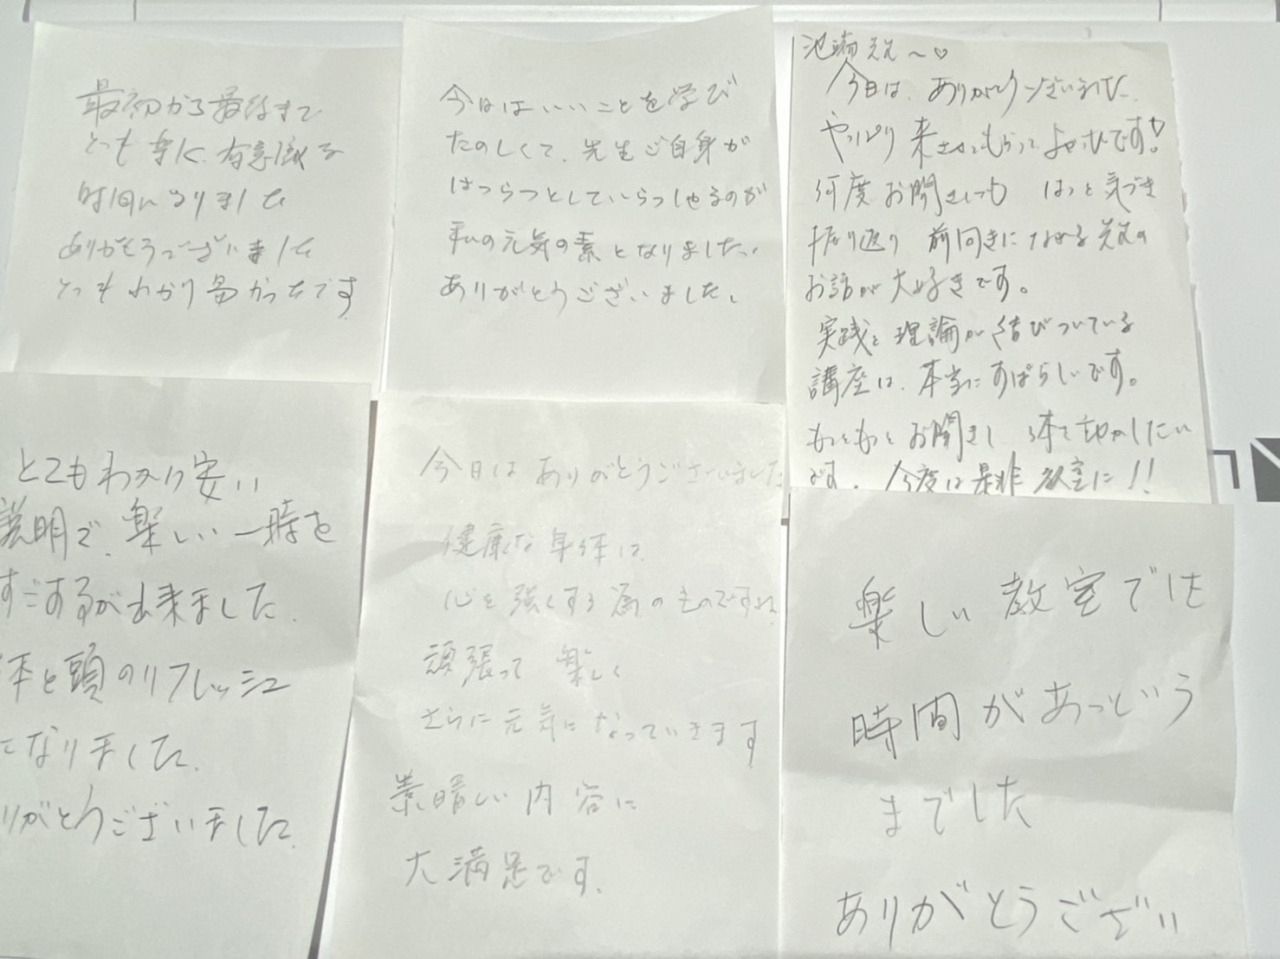 最初から最後まで
とても楽しく、有意義な
時間になりました
ありがとうございました
とてもわかり易かったです
今日はいいことを学び
たのしくて、先生ご自身が
はつらつとしていらっしゃるのが
私の元気の素となりました。
ありがとうございました。
今日は、ありがとうございました。
やっぱり来させてもらってよかったです!
何度お聞きしても はっと気づき
振り返り 前向きになれる先生の
お話が大好きです。
実践と理論が結びついている
講座は、本当にすばらしいです。
もっともっとお聞きし 体で動かしたい
です。 今度は是非教室に!!
とてもわかり安い
説明で、楽しい一時を
すごするが出来ました.
体と頭のリフレッシュ
になりました.
りがとうございました.
今日はありがとうございました
健康な身体は
心を強くする為のものですね
頑張って 楽しく
さらに元気になっていきます
素晴しい内容に
大満足です.
楽しい教室では
時間があっという
までした
ありがとうござい